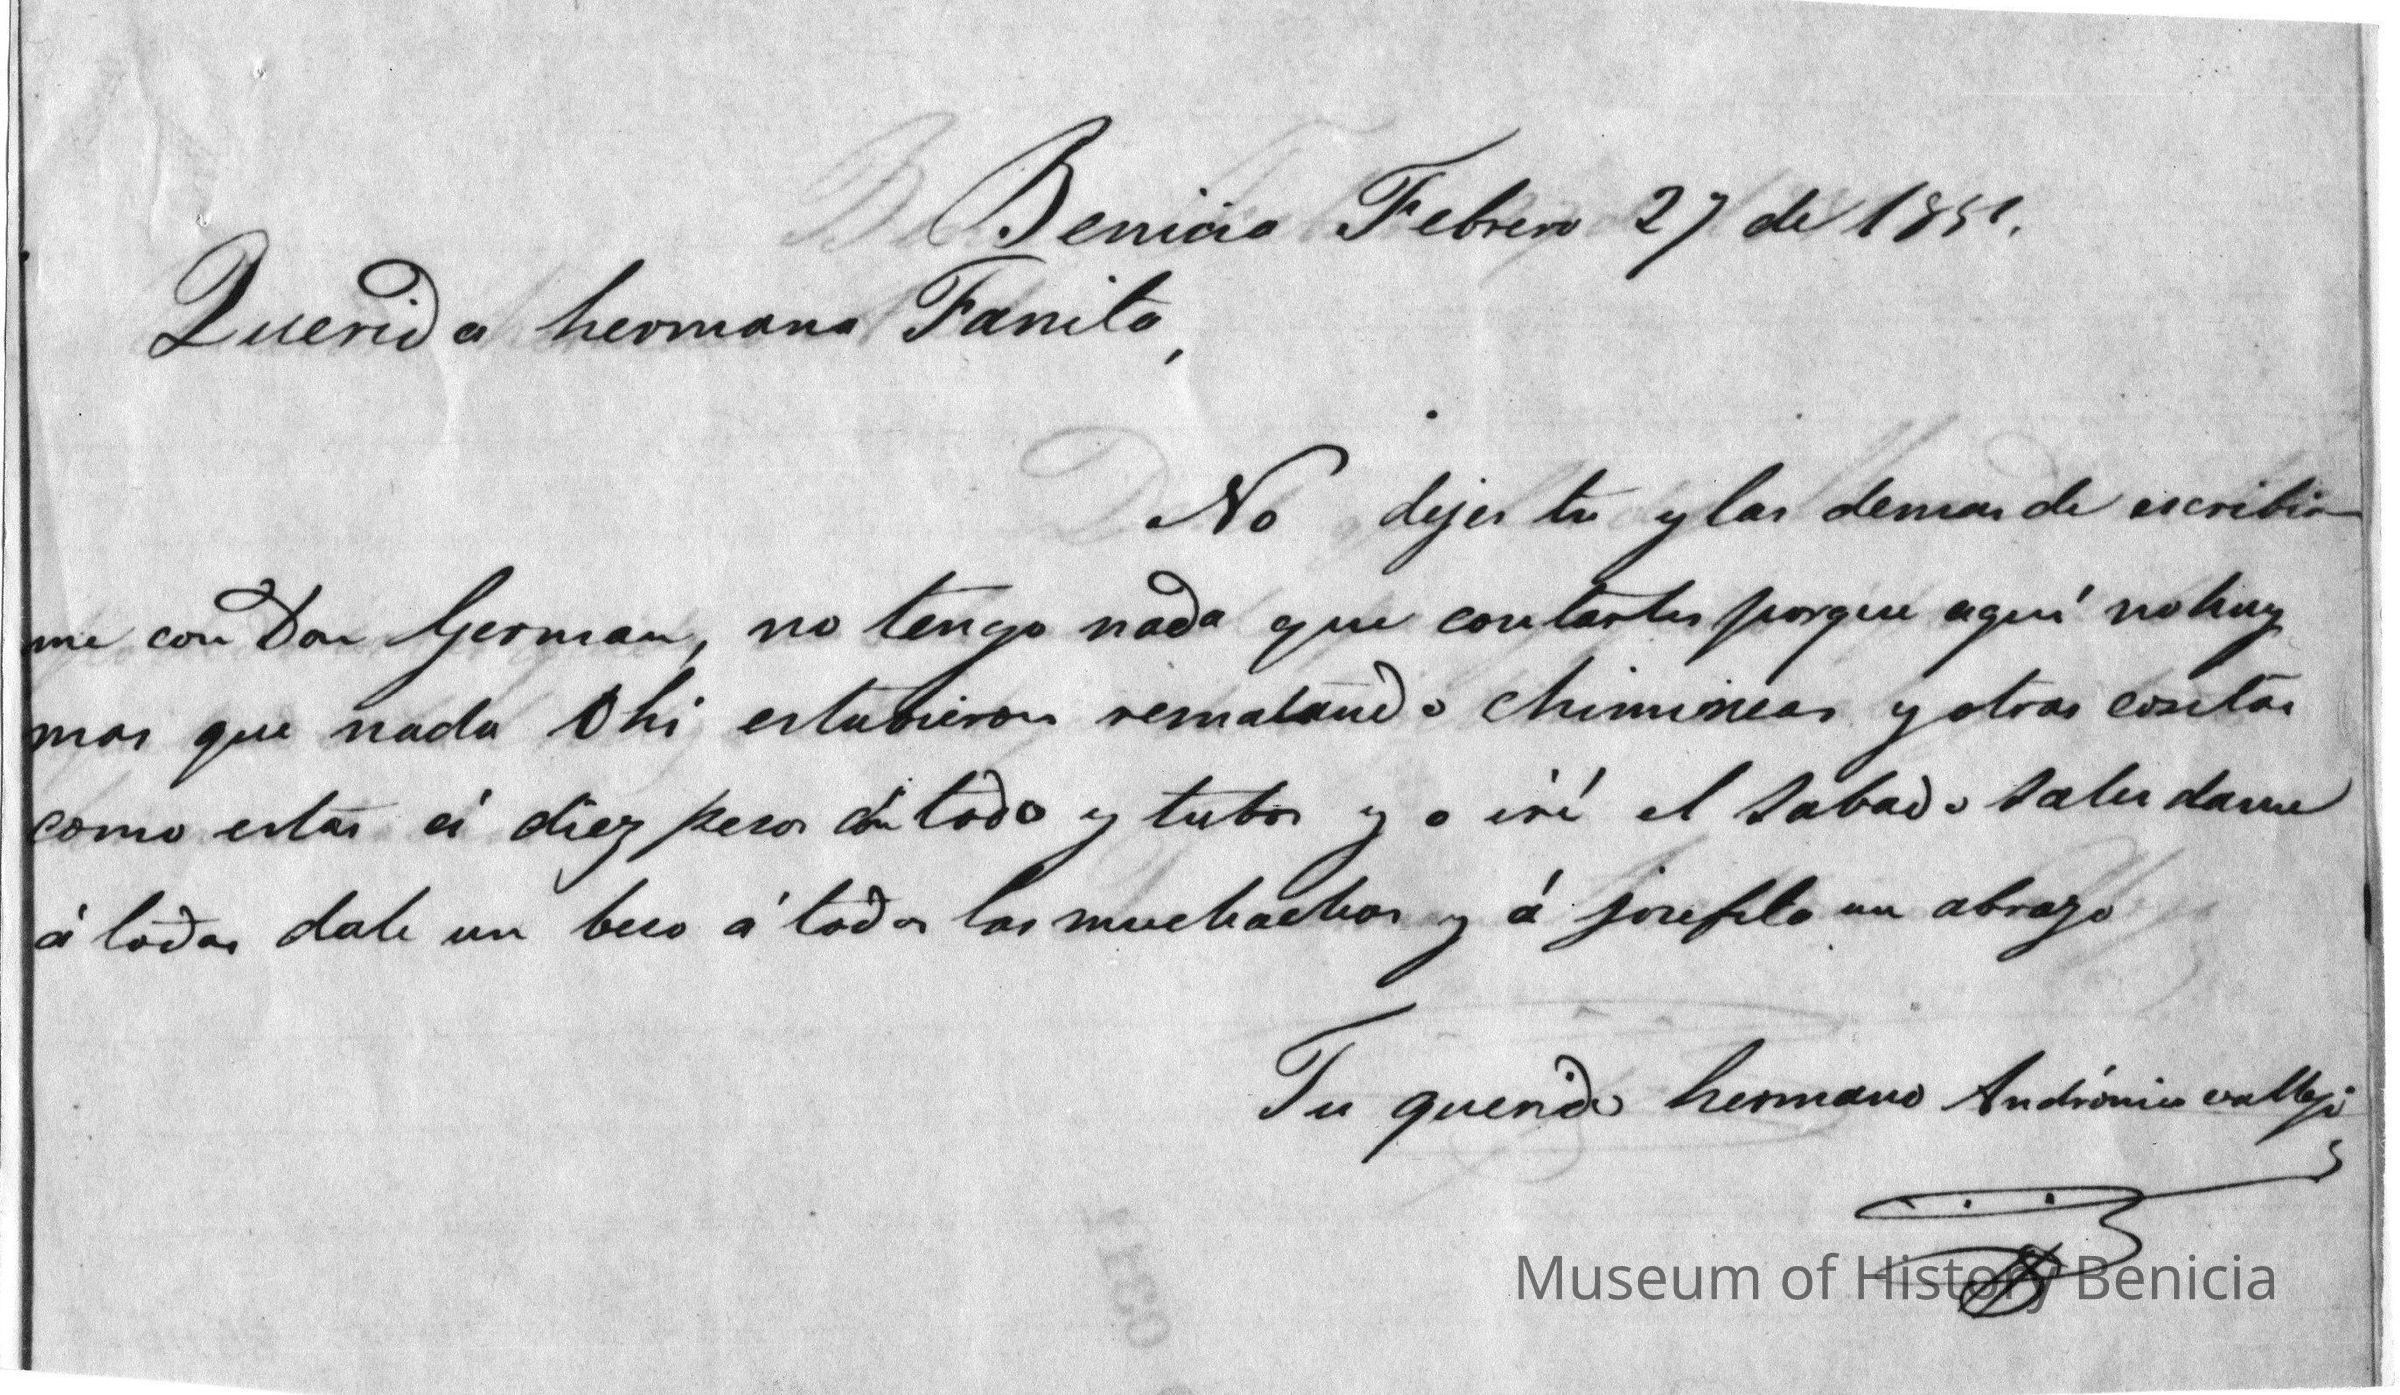 Benicia Febrero 27 de 1851.
Querida hermana Fanita,
No dejes tu y las demas de escribir
me con Don German, no tengo nada que contartes porque aquí no hay
mas que nada Ohi estubieron rematando chimineas y otras cositas
como estas á diez pesos con todo y tubos yo iré el Sabado Saludame
á todas dale un beso á todas las muchachas y á josefita un abrazo
Tu querido hermano Andrónico vallejo
Museum of History Benicia